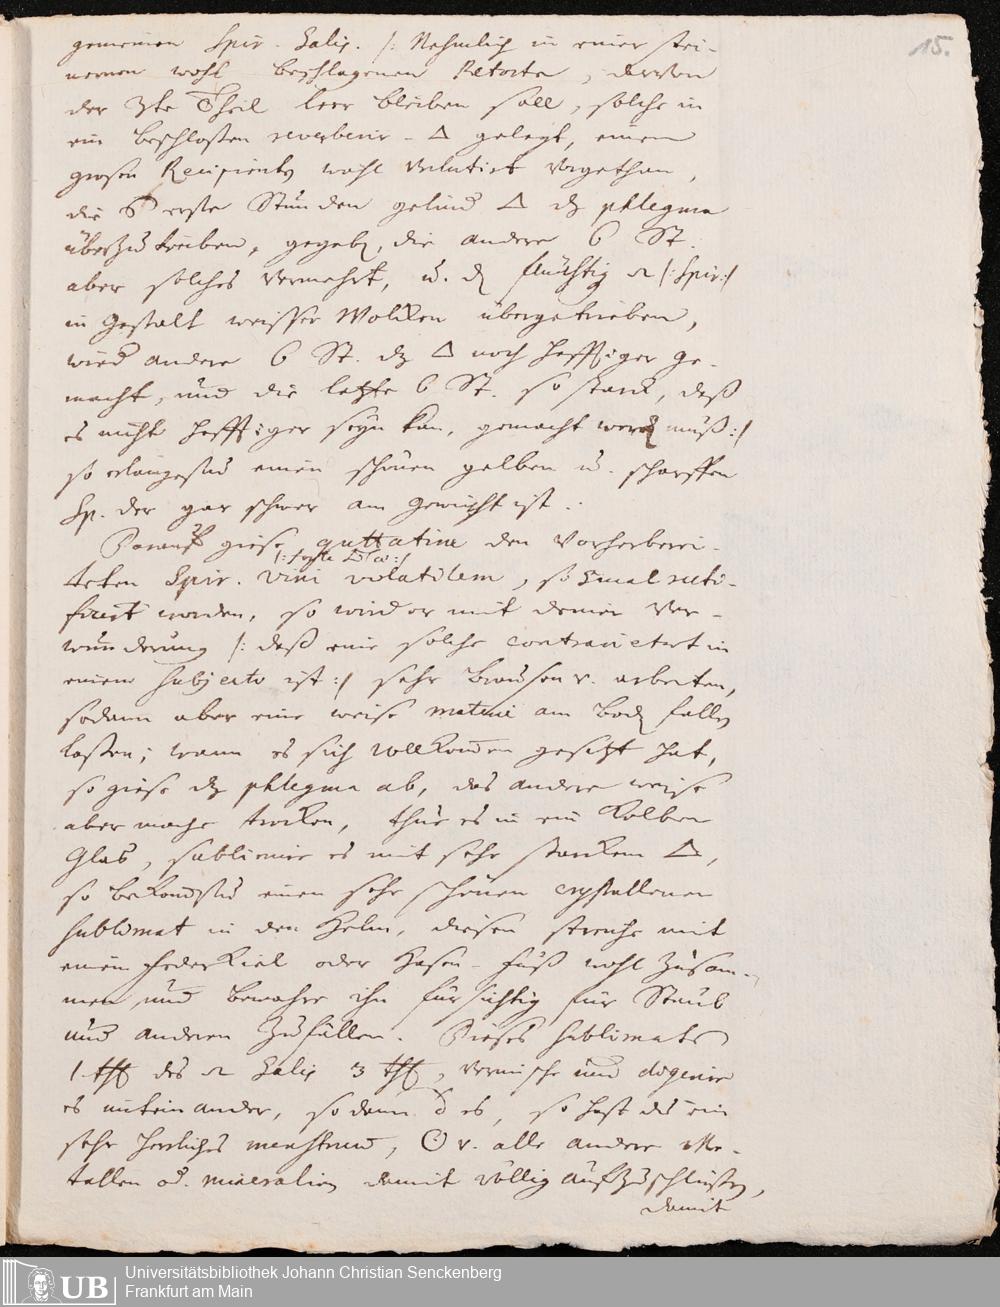 15.
gemeinen Spir. Salis. /: Nehmlich in einer stei-
nernen wohl beschlagenen Retorte, davon
der 3te Theil leer bleiben soll, solche in
ein beschloßen reverberir-△ gelegt, einen
grosen Recipienten wohl verlutirt vorgethan,
die 6 erste Stunden gelind △ dz phlegma
überzutreiben, gegeben, die andere 6 St.
aber solches vermehrt, u. d flüchtig /: Spir :/
in Gestalt weisser Wolken übergetrieben,
wied andere 6 St. dz △ noch hefftiger ge-
macht, und die letzte 6 St. so starck, daß
es nicht hefftiger seyn kan, gemacht werd muß :/
so erlangestu einen schönen gelben u. scharffen
Sp. der gar schwer am Gewicht ist.
Darauf giese guttatim den vorherberei-
teten Spir. vini volatilem, so mal recti-
ficirt worden, so wird er mit deiner Ver-
wunderung /: daß eine solche contrarietet in
einem Subjecto ist :/ sehr brausen v. arbeiten,
sodann aber eine weise materie am Bod fallen
laßen; wann es sich vollkommen gesetzt hat,
so giese dz phlegma ab, das andere weise
aber mache trocken, thue es in ein Kolben
Glas, sublimire es mit sehr starckem △,
so bekomstu einen sehr schönen crystallenen
Sublimat in den Helm, diesen streiche mit
einem Federkiel oder Hasen-Fuß wohl zusam-
men, und bewahre ihn fürsichtig für Staub
und anderen Zufällen. Dieses Sublimats
1 thl des Salis 3 thl, vermische und digerire
es miteinander, sodann es, so hast du ein
sehr herrliches menstruum, ☉ v. alle andere Me-
tallen od. mineralien damit völlig aufzuschließen,
damit
UB
Universitätsbibliothek Johann Christian Senckenberg
Frankfurt am Main